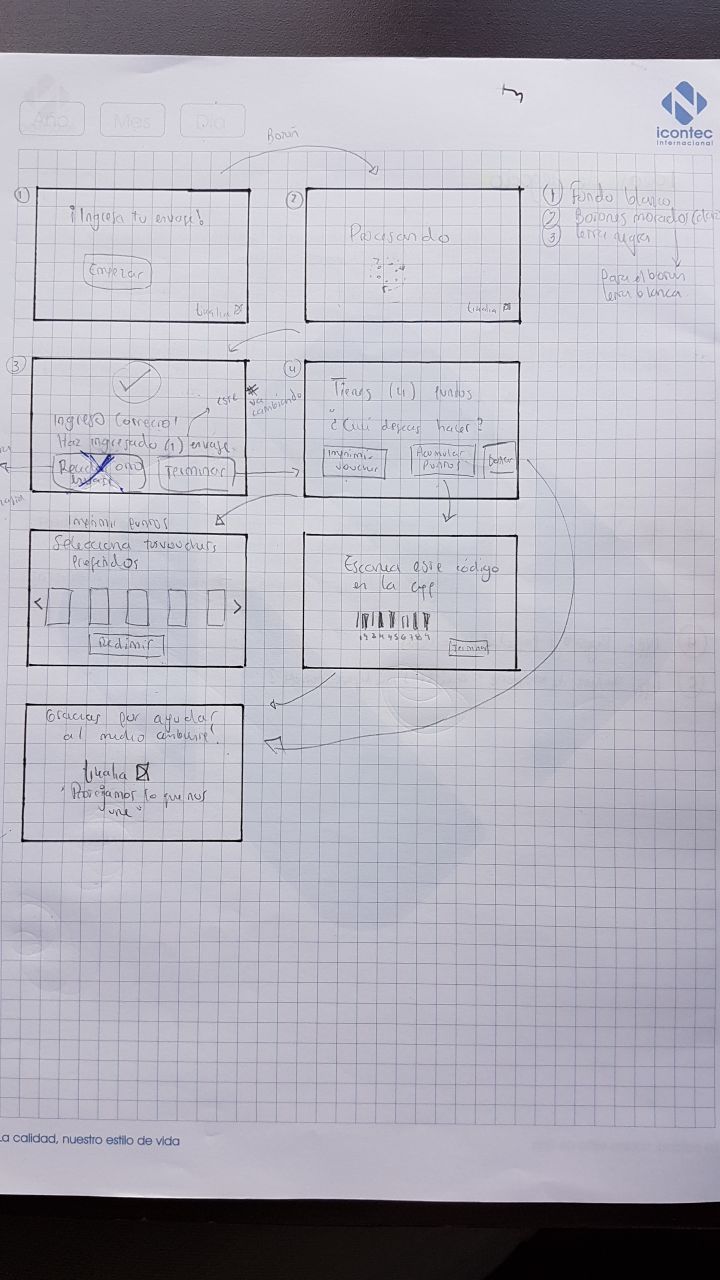 Año
Mes
Día
icontec
internacional
Botón
1
¡Ingresa tu envase!
Empezar
2
Procesando
1 Fondo blanco
2 Botones morados
3 letra negra
Para el botón
letra blanca
3
Ingreso Correcto!
Haz ingresado (1) envase.
Terminar
este #
va
cambiando
4
Tienes (4) puntos
¿Cuál deseas hacer?
Imprimir
voucher
Acumular
Puntos
Donar
Imprimir puntos
Selecciona tus vouchers
preferidos
< >
Redimir
Escanea este código
en la app
123456789
Terminar
Gracias por ayudar
al medio ambiente!
"Protejamos lo que nos
une"
La calidad, nuestro estilo de vida